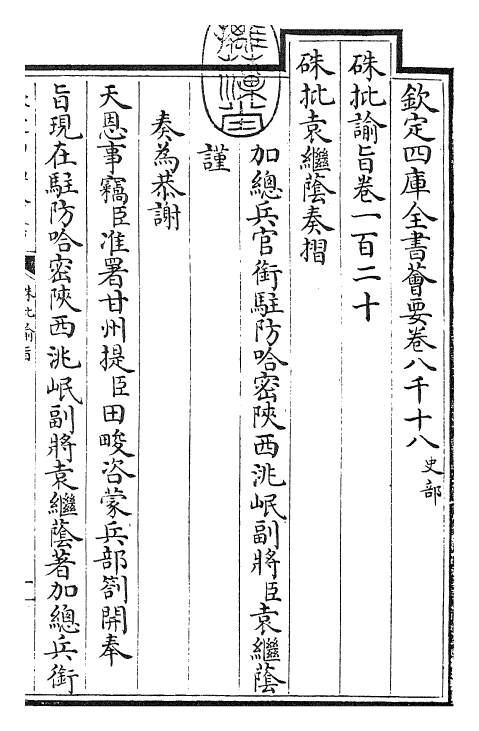 欽定四庫全書薈要卷八千十八 史部
硃批諭旨卷一百二十
硃批袁繼蔭奏摺
加總兵官銜駐防哈密陝西洮岷副將臣袁繼蔭
謹
奏為恭謝
天恩事竊臣准署甘州提臣田畯咨蒙兵部劄開奉
旨現在駐防哈密陝西洮岷副將袁繼蔭著加總兵銜
硃批諭旨
一